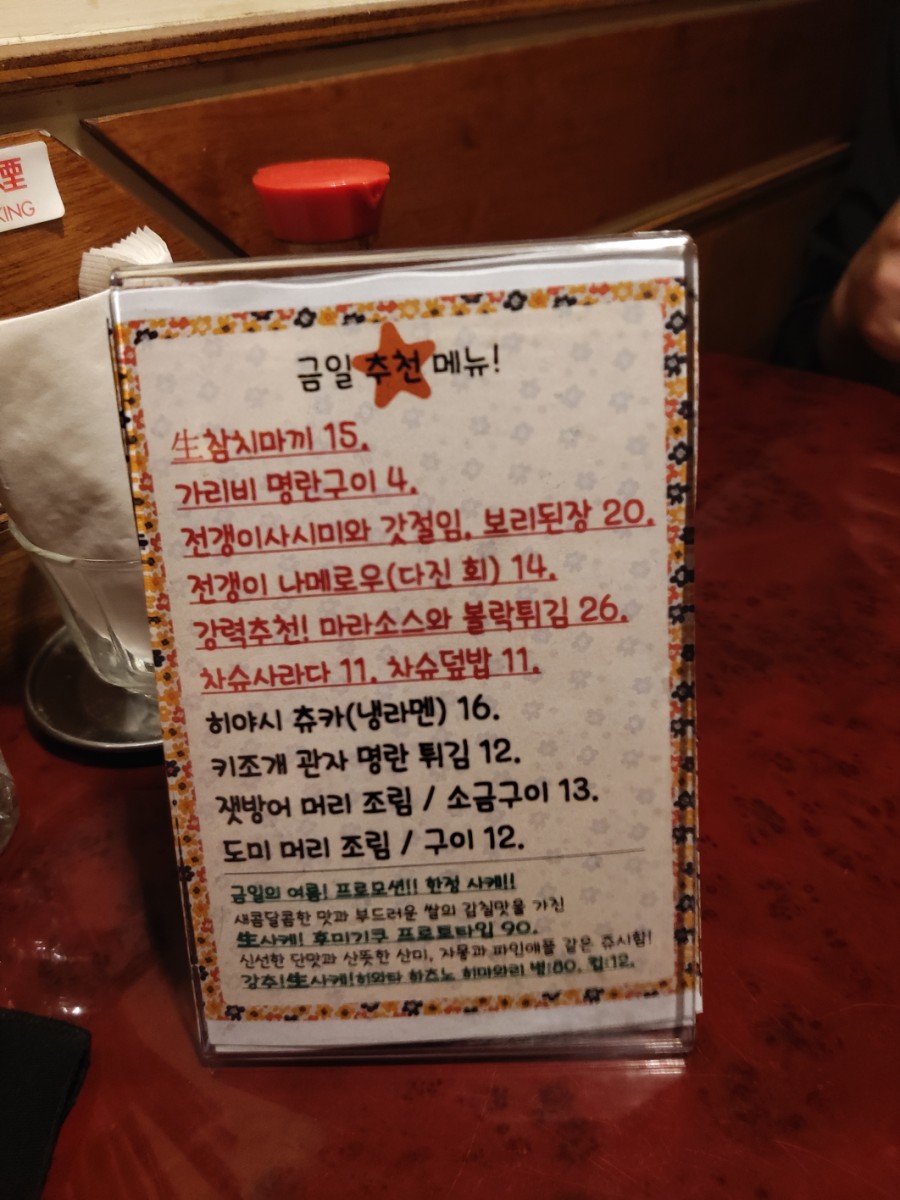 煙
KING
금일 추천 메뉴!
生참치마끼 15.
가리비 명란구이 4.
전갱이사시미와 갓절임, 보리된장 20.
전갱이 나메로우(다진 회) 14.
강력추천! 마라소스와 볼락튀김 26.
차슈사라다 11, 차슈덮밥 11.
히야시 츄카(냉라멘) 16.
키조개 관자 명란 튀김 12.
잿방어 머리 조림 / 소금구이 13.
도미 머리 조림 / 구이 12.
금일의 여름! 프로모션!! 한정 사케!!
새콤달콤한 맛과 부드러운 쌀의 감칠맛을 가진
生사케! 후미기쿠 프로토타입 90.
신선한 단맛과 산뜻한 산미, 자몽과 파인애플 같은 쥬시함!
강추!生사케!히와타 하츠노 히마와리 병:80. 컵:12.